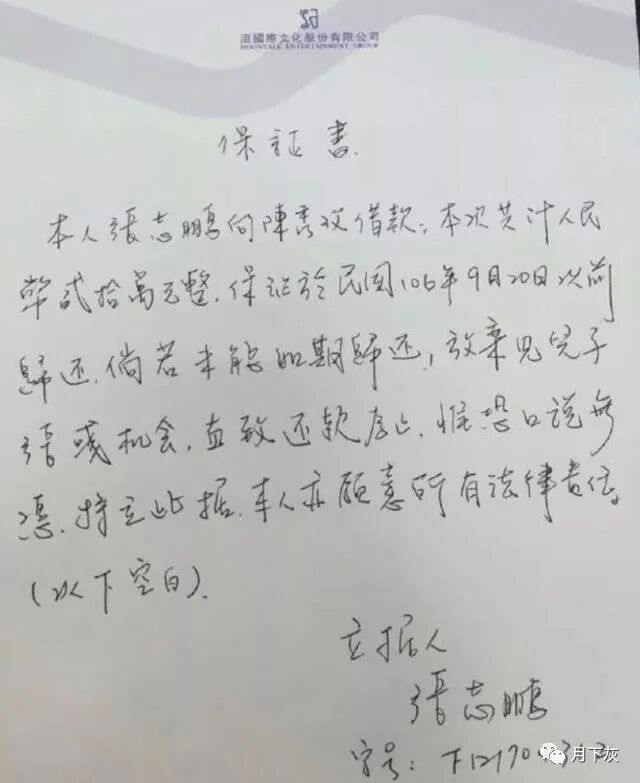 國際文化股份有限公司
MOONTALE ENTERTAINMENT GROUP
保証書.
本人張志鵬向陳借款:本次共计人民
幣貳拾萬元整.保证於民国106年9月20日以前
歸还.倘若未能如期歸还,放棄見兒子
張彧机会,直致还款為止.惟恐口说無
憑.特立此据.本人亦願意所有法律責任。
(以下空白).
立据人
張志鵬
字号:
月下灰